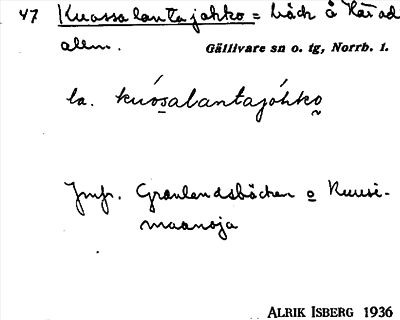 47 Kuossalantajohko = bäck å Härad
alem.
Gällivare sn o. tg, Norrb. l.
la. kúo̱salantajóhko̰
Jmfr. Granlandsbäcken o Kuusi-
maanoja
ALRIK ISBERG 1936